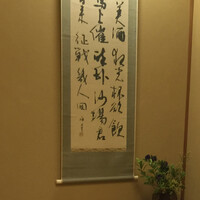 美酒夜光杯欲飲
馬上催酔臥沙場君
来征戰幾人回